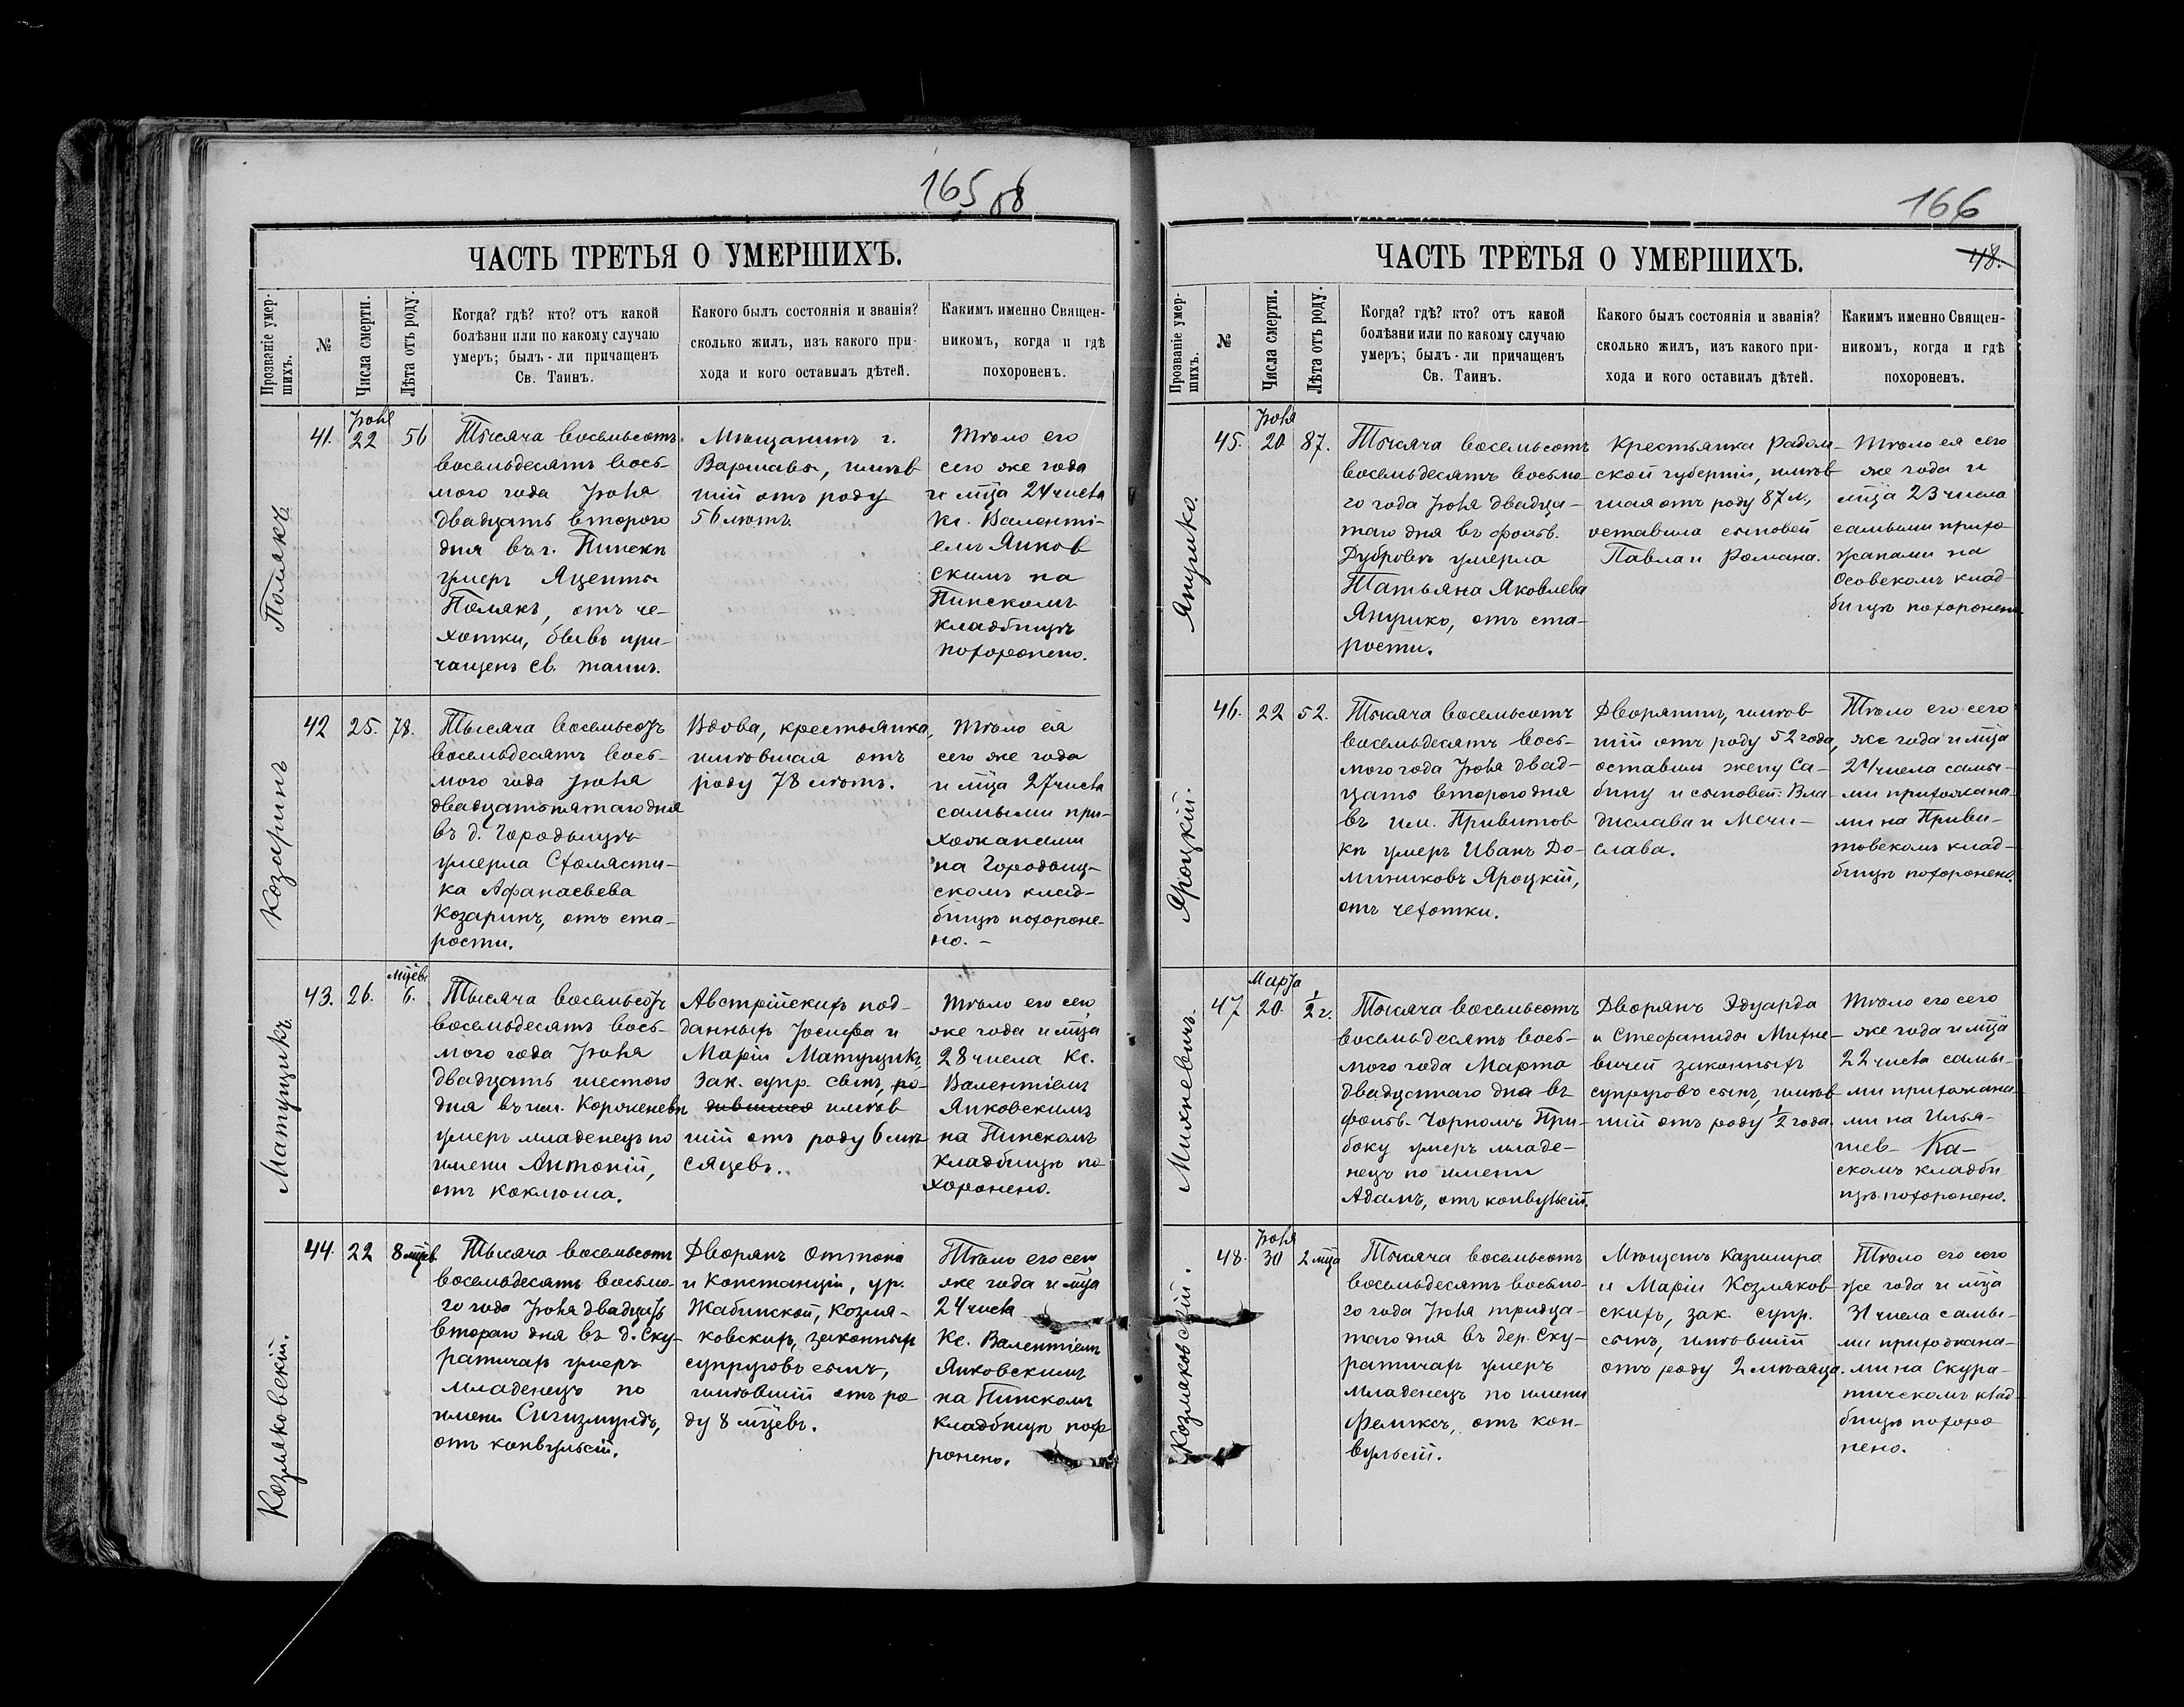 165
166
ЧАСТЬ ТРЕТЬЯ О УМЕРШИХЪ.
Прозваніе умер-
шихъ.
№
Числа смерти.
Лѣта отъ роду.
Когда? гдѣ? кто? отъ какой
болѣзни или по какому случаю
умеръ; былъ-ли причащенъ
Св. Таинъ.
Какого былъ состоянія и званія?
сколько жилъ, изъ какого при-
хода и кого оставилъ дѣтей.
Каким​ъ именно Священ-
никомъ, когда и гдѣ
похороненъ.
Полякъ
41.
Іюня
22
56
Тысяча восемьсотъ
восемьдесятъ вось-
мого года Іюня
двадцать второго
дня въ г. Пинскѣ
умеръ Яценты
Полякъ, отъ че-
хотки, бывъ при-
чащенъ св. таинъ.
Мѣщанинъ г.
Варшавы, имѣв
шій отъ роду
56 лѣтъ.
Тѣло его
сего же года
и мца 24 числа
Кс. Валенті-
емъ Янков
скимъ на
Пинскомъ
кладбищѣ
похоронено.
Козаринъ
42
25.
78.
Тысяча восемьсотъ
восемьдесятъ вось-
мого года Іюня
двадцать пятаго дня
въ д. Городыщѣ
умерла Схоласти-
ка Афанасьева
Козаринъ, отъ ста-
рости.
Вдова, крестьянка,
имѣвшая отъ
роду 78 лѣтъ.
Тѣло ея
сего же года
и мца 27 числа
самыми при-
хожанами
на Городыщ-
скомъ клад-
бищѣ похороне-
но. –
Матущикъ.
43.
26.
мцевъ
6.
Тысяча восемьсотъ
восемьдесятъ вось-
мого года Іюня
двадцать шестого
дня въ им. Корженевѣ
умеръ младенецъ по
имени Антоній,
отъ коклюша.
Австрійскихъ под-
данныхъ Іосифа и
Маріи Матущикъ,
Зак. супр. сынъ, ро-
дившійся имѣв
шій отъ роду 6 мѣ
сяцевъ.
Тѣло его сего
же года и мца
28 числа Кс.
Валентіемъ
Янковскимъ
на Пинскомъ
кладбищѣ по
хоронено.
Козляковскій.
44.
22
8 мцев.
Тысяча восемьсотъ
восемьдесятъ восьмо-
го года Іюня двадцать
второго дня въ д. Ску-
ратичахъ умеръ
младенецъ по
имени Сигизмундъ,
отъ конвульсій.
Дворянъ Оттона
и Констанціи, ур.
Жабинской, Козля-
ковскихъ, законныхъ
супруговъ сынъ,
имѣвшій отъ ро
ду 8 мцевъ.
Тѣло его сего
же года и мца
24 числа
Кс. Валентіемъ
Янковскимъ
на Пинскомъ
кладбищѣ похо
ронено.
ЧАСТЬ ТРЕТЬЯ О УМЕРШИХЪ.
48.
Прозваніе умер-
шихъ.
№
Числа смерти.
Лѣта отъ роду.
Когда? гдѣ? кто? отъ какой
болѣзни или по какому случаю
умеръ; былъ-ли причащенъ
Св. Таинъ.
Какого былъ состоянія и званія?
сколько жилъ, изъ какого при-
хода и кого оставилъ дѣтей.
Какимъ именно Священ-
никомъ, когда и гдѣ
похороненъ.
Янушко.
45.
Іюня
20
87.
Тысяча восемьсотъ
восемьдесятъ восьмо-
го года Іюня двадца-
таго дня въ фольв.
Дубровѣ умерла
Татьяна Яковлева
Янушко, отъ ста-
рости.
Крестьянка Радом-
ской губерніи, имѣв
шая отъ роду 87 л,
оставила сыновей
Павла и Романа.
Тѣло ея сего
же года и
мца 23 числа
самыми прихо-
жанами на
Осовскомъ клад-
бищѣ похоронено.
Яроцкій.
46.
22
52.
Тысяча восемьсотъ
восемьдесятъ вось-
мого года Іюня двад-
цать второго дня
въ им. Привитов
кѣ умеръ Иванъ До-
миниковъ Яроцкій,
отъ чехотки.
Дворянинъ, имѣв
шій отъ роду 52 года,
оставилъ жену Са-
бину и сыновей: Вла-
дислава и Мечи-
слава.
Тѣло его сего
же года и мца
24 числа самы-
ми прихожана-
ми на Приви-
товскомъ клад-
бищѣ похоронено.
Михневичъ.
47
Марта
20.
1/2 г.
Тысяча восемьсотъ
восемьдесятъ вось-
мого года Марта
двадцатаго дня въ
фольв. Чорномъ При-
боку умеръ младе-
нецъ по имени
Адамъ, отъ конвульсій.
Дворянъ Эдуарда
и Стефаниды Михне-
вичей законныхъ
супруговъ сынъ, имѣв
шій отъ роду 1/2 года.
Тѣло его сего
же года и мца
22 числа самы-
ми прихожана-
ми на Илья-
шев- Ка-
скомъ кладби
щѣ похоронено.
Козляковскій.
48.
Іюня
30
2 мца
Тысяча восемьсотъ
восемьдесятъ восьмо-
го года Іюня тридца-
таго дня въ дер. Ску-
ратичахъ умеръ
младенецъ по имени
Феликсъ, отъ кон-
вульсій.
Мѣщанъ Казимира
и Маріи Козляков
скихъ, зак. супр.
сынъ, имѣвшій
отъ роду 2 мѣсяца.
Тѣло его сего
же года и мца
31 числа самы-
ми прихожана-
ми на Скура-
тичскомъ клад-
бищѣ похоро
нено.